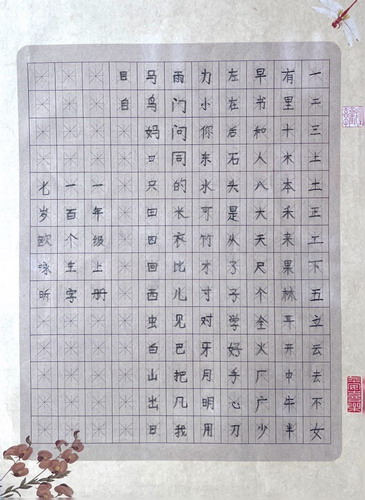 一二三上土正工下五立云去不女
有里十木本禾来果林耳开中牛半
早书和人八大天尺个全火厂广少
左在后石头是从了子学好手心刀
力小你东水可竹才寸对牙月明用
雨门问同的米衣比儿见巴把几我
马鸟妈口只田四回西虫白山出日
目自
一年级上册
一百个生字
七岁欧咏昕